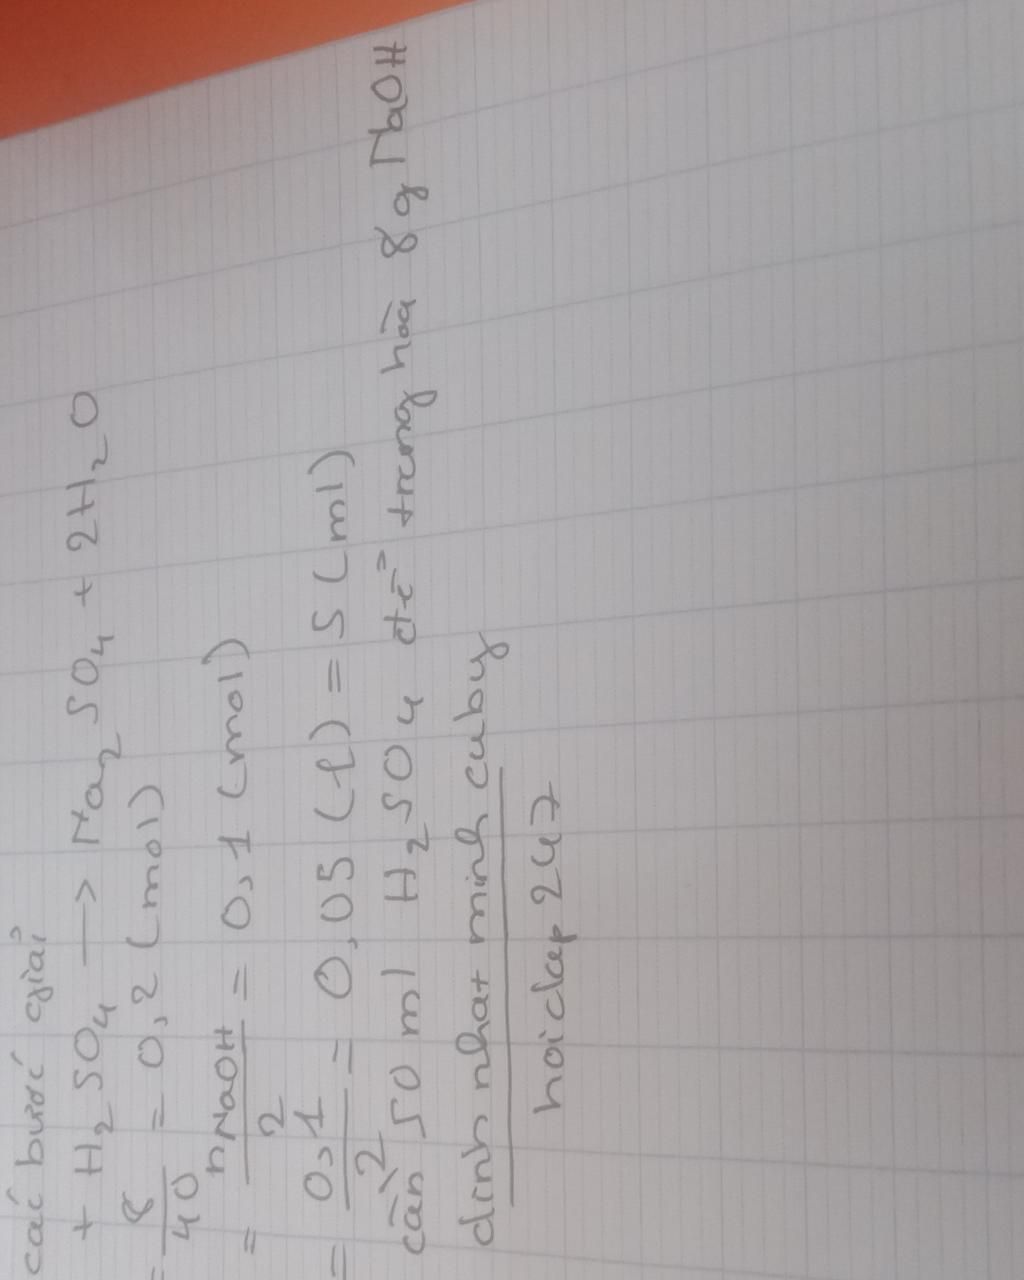 các bước giải
+ H2SO4 → Na2SO4 + 2H2O
= 8/40 = 0,2 (mol)
= nNaOH/2 = 0,1 (mol)
= 0,1/2 = 0,05 (l) = 5 (ml)
cần 50 ml H2SO4 để trung hòa 8g NaOH
dinh nhat minh cuby
hoidap247